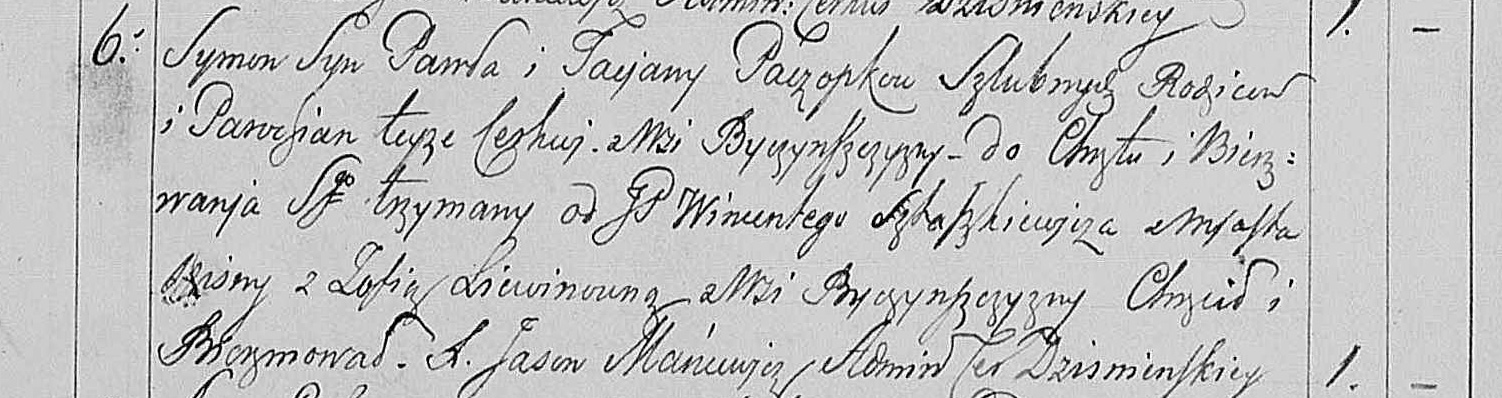 Admin: Cerkwi Dzisnienskiey 1. –
6. Symon Syn Pawła i Tacjany Paczopkow Szlubnych Rodzicow
i Parochian teyże Cerkwi. z Wsi Byczynszczyzny – do Chrztu i Bierz=
wania Sgo trzymany od JP Wincentego z Miasta
Dzisny z Zofią Liewinowną z Wsi Byczynszczyzny Chrzcił i
Bierzmował. X. Jason Admin Cer Dzisnienskiey 1. –